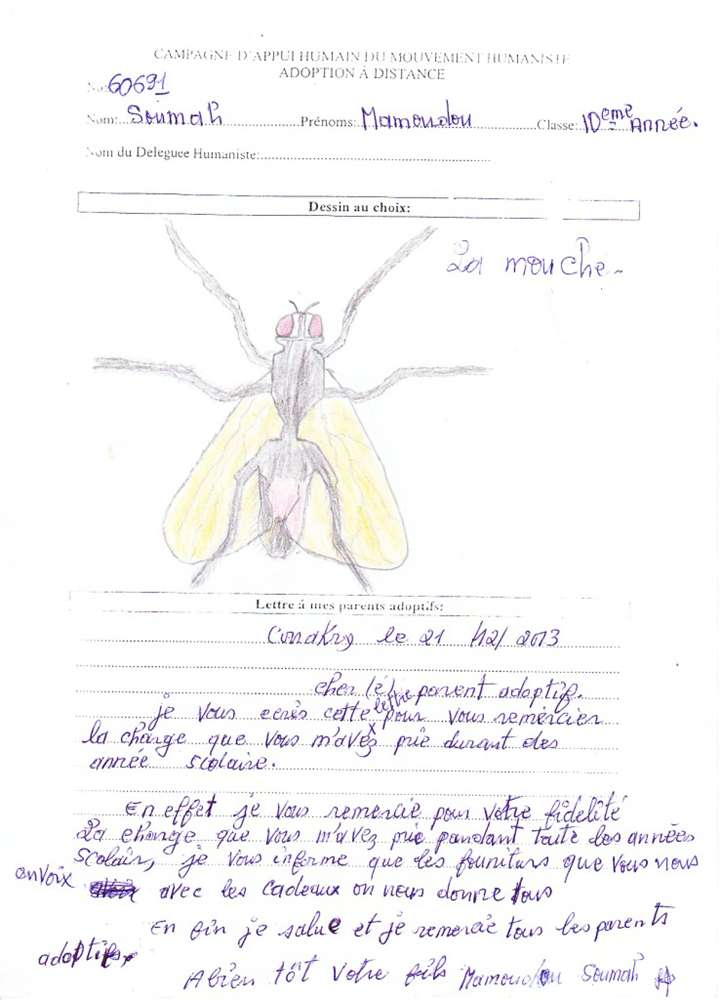 CAMPAGNE D'APPUI HUMAIN DU MOUVEMENT HUMANISTE
ADOPTION À DISTANCE
No: 60691
Nom: Soumah Prénoms: Mamoudou Classe: 10eme Année.
Nom du Deleguee Humaniste:
Dessin au choix:
La mouche
Lettre á mes parents adoptifs:
Conakry le 21 /12/ 2013
cher (é) parent adoptif.
je vous ecris cette lettre pour vous remércier
la charge que vous m'avez prie durant des
année scolaire.
En effet je vous remercie pour votre fidelité
La charge que vous m'avez prie pandant toute les années
scolair, je vous informe que les founiturs que vous nous
envoix avec les cadeaux on nous donne tous
En fin je salue et je remercie tous les parents
adoptifs
A bien tôt votre fils Mamoudou Soumah